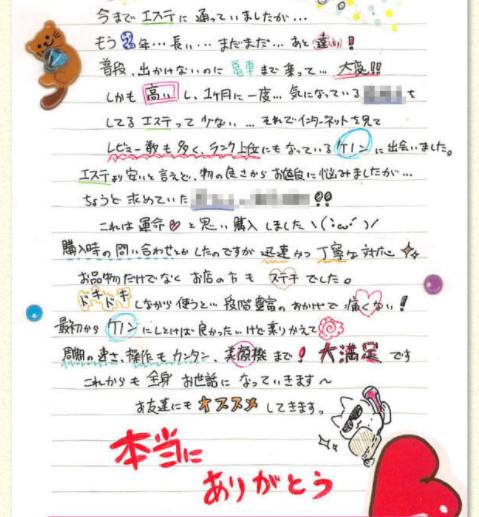 今までエステに通っていましたが…
もう2年…長い…まだまだ…あと遠い!
普段、出かけないのに電車まで乗って…大変!!
しかも高いし、1ヶ月に一度…気になっている
してるエステって少ない…それでインターネットを見て
レビュー数も多く、ランク上位にもなっているケノンに出会いました。
エステより安いと言えど、物の良さからお値段に悩みましたが…
ちょうど求めていた!!
これは運命♡と思い購入しました\(;ω;)/
購入時の問い合わせとかしたのですが迅速かつ丁寧な対応
お品物だけでなくお店の方もステキでした。
ドキドキしながら使うと…段階豊富のおかげで痛くない!
最初からケノンにしとけば良かった…けど乗りかえて
周期の速さ、操作もカンタン、美顔機まで!大満足です
これからも全身お世話になっていきます〜
お友達にもオススメしてきます。
本当に
ありがとう